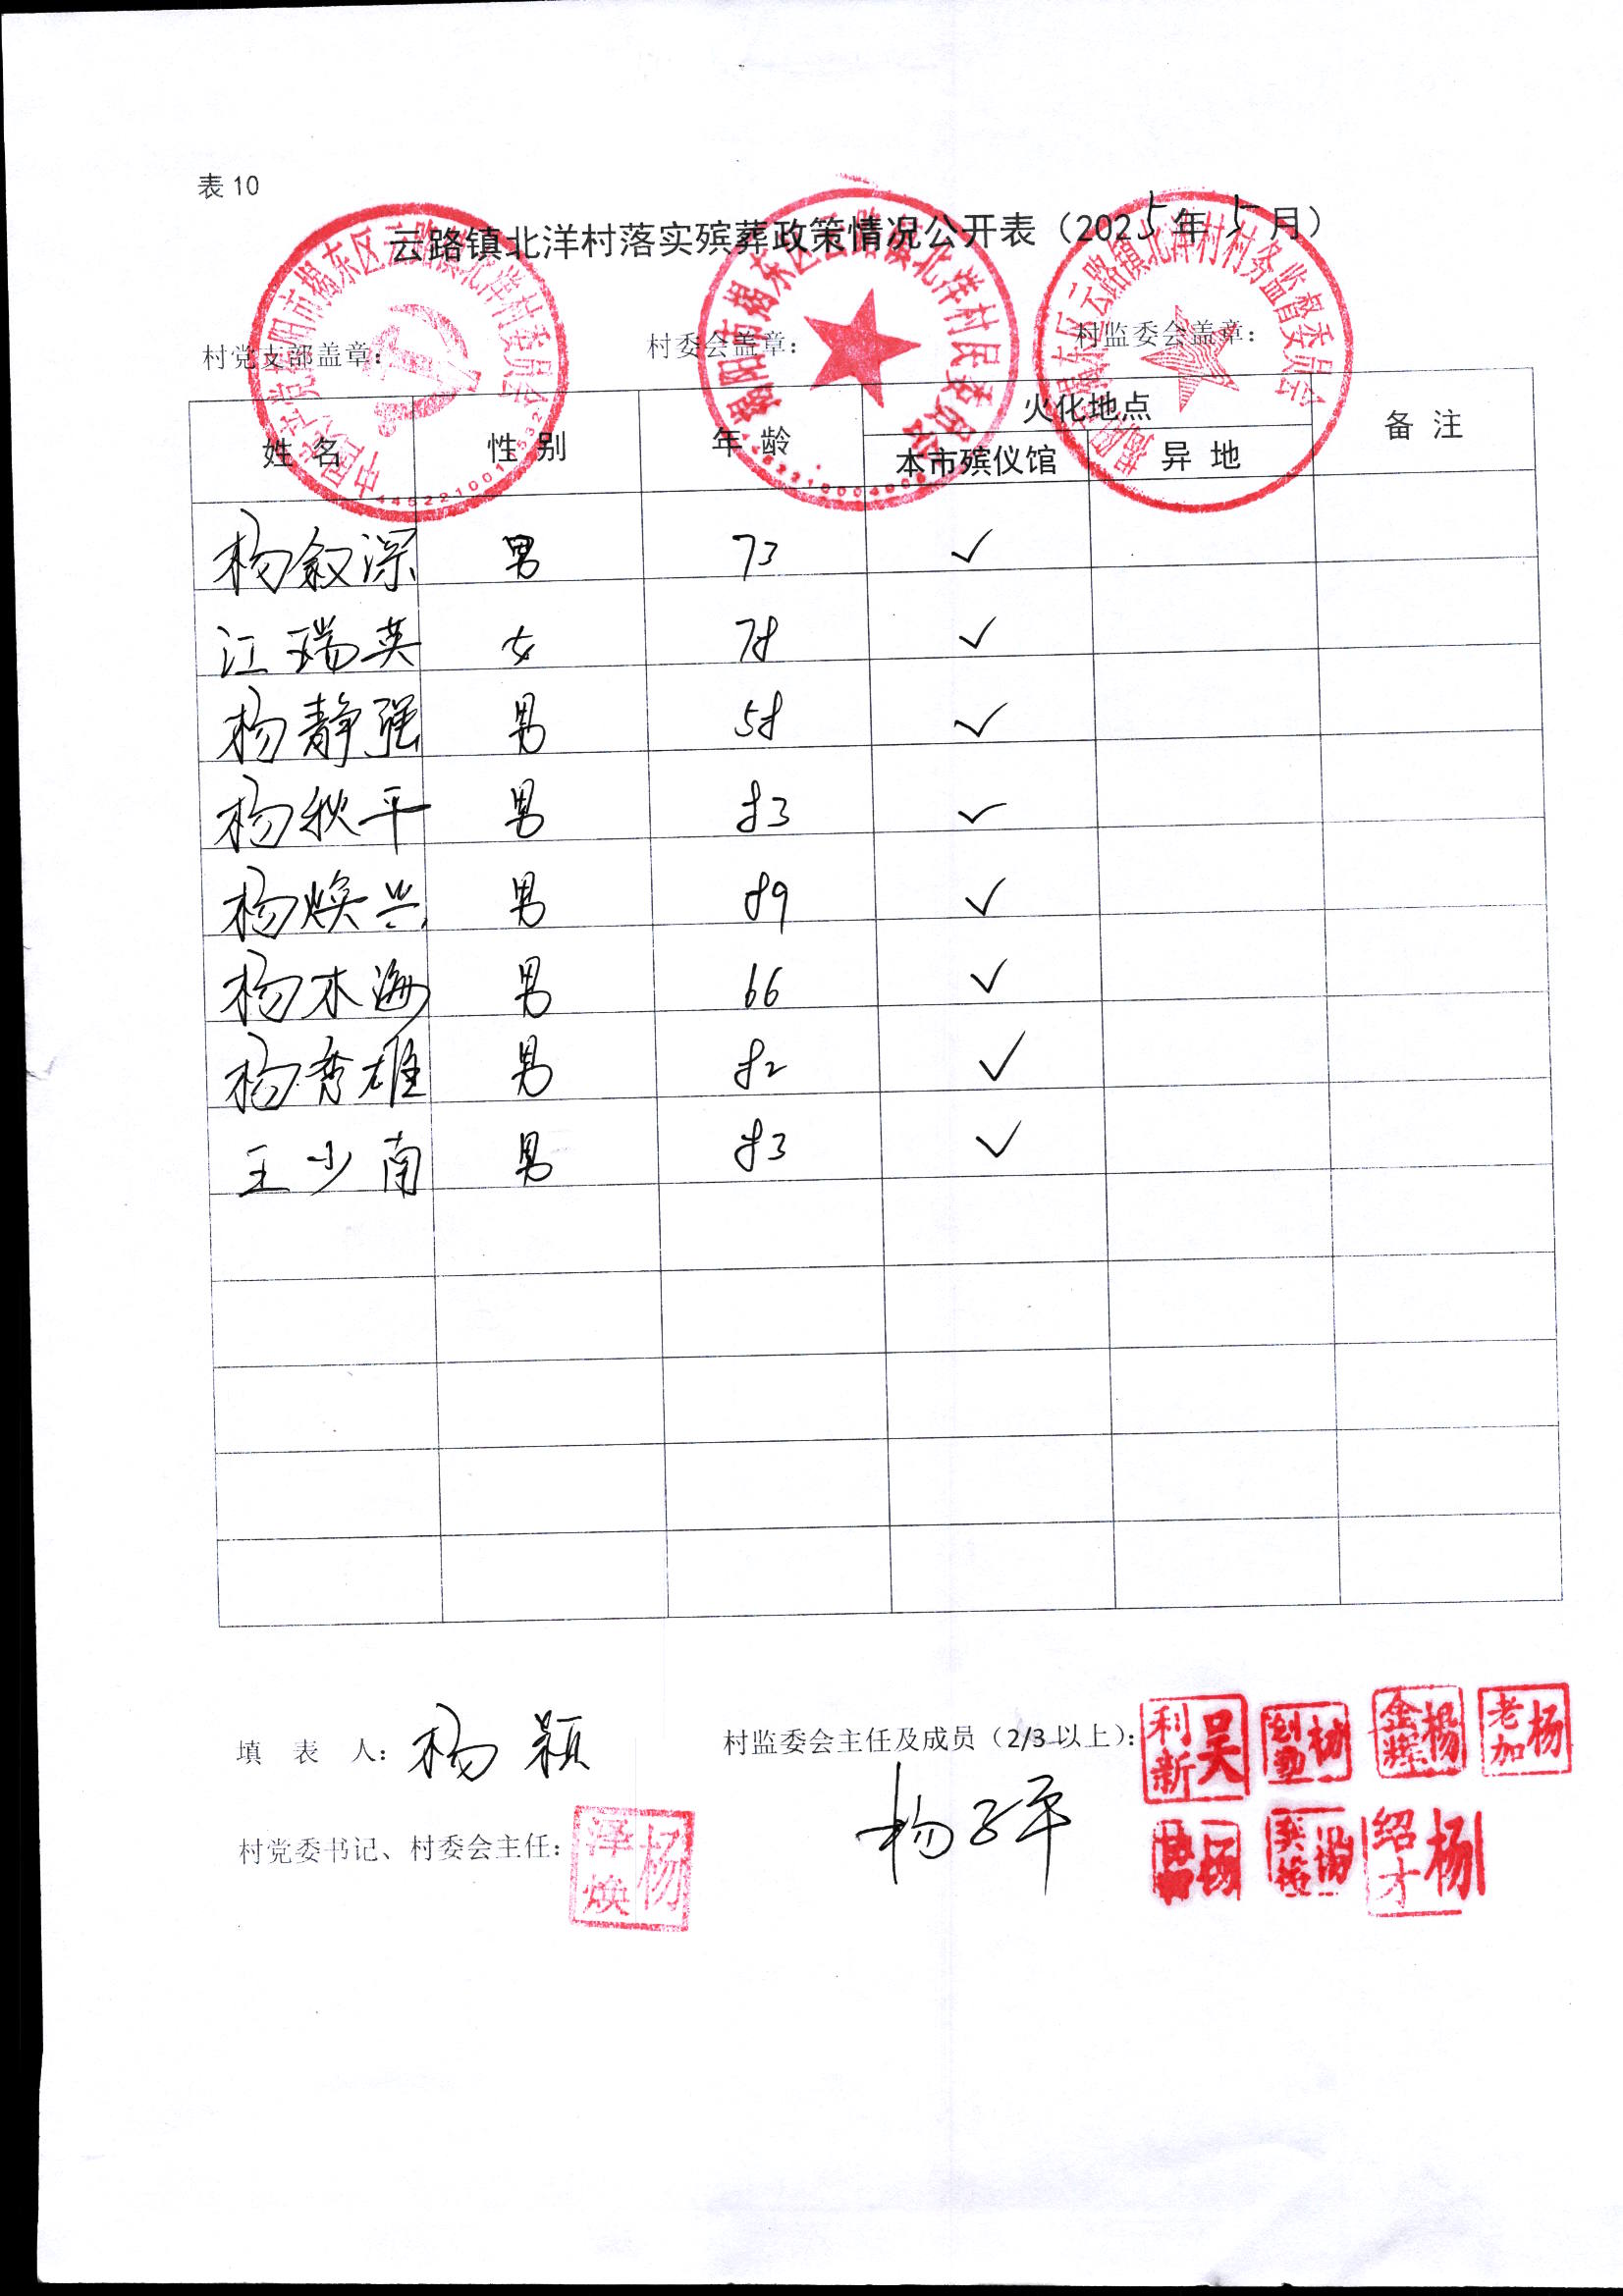 表 10
云路镇北洋村落实殡葬政策情况公开表（2025年5月）
村党支部盖章： 村委会盖章： 村监委会盖章：
中国共产党揭阳市揭东区云路镇北洋村委员会
揭阳市揭东区云路镇北洋村民委员会
揭阳市揭东区云路镇北洋村村务监督委员会
姓 名 性 别 年 龄 火化地点 备 注
本市殡仪馆 异 地
杨叙深 男 73 ✓
江瑞英 女 78 ✓
杨静强 男 58 ✓
杨秋平 男 83 ✓
杨焕兴 男 89 ✓
杨木海 男 66 ✓
杨秀雄 男 82 ✓
王少南 男 83 ✓
填 表 人：杨颖 村监委会主任及成员（2/3 以上）：
吴利新 杨金辉 杨老加
杨子平
村党委书记、村委会主任：杨泽焕
杨绍才